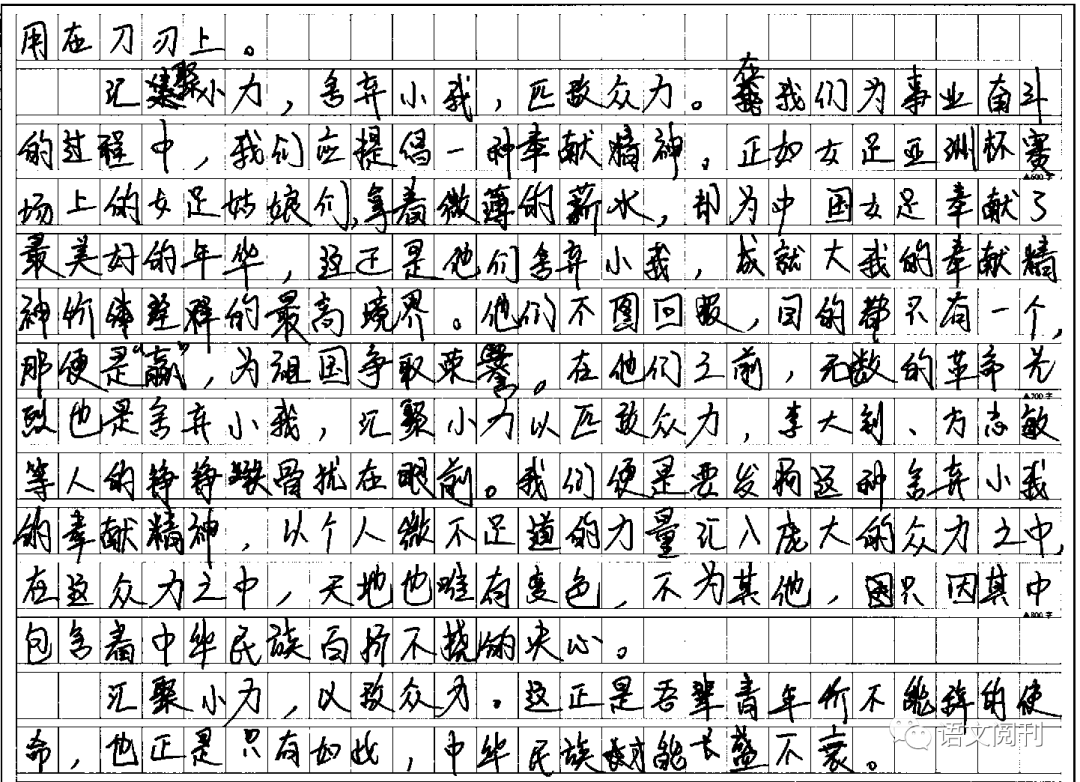 用在刀刃上。
汇聚小力，舍弃小我，匹敌众力。在我们为事业奋斗
的过程中，我们应提倡一种奉献精神。正如女足亚洲杯赛
▲600字
场上的女足姑娘们，拿着微薄的薪水，却为中国女足奉献了
最美好的年华，这正是他们舍弃小我，成就大我的奉献精
神价体诠释的最高境界。他们不图回报，目的都只有一个，
那便是“赢”，为祖国争取荣誉。在他们之前，无数的革命先
▲700字
烈也是舍弃小我，汇聚小力以匹敌众力，李大钊、方志敏
等人的铮铮铁骨犹在眼前。我们便是要发扬这种舍弃小我
的奉献精神，以个人微不足道的力量汇入庞大的众力之中，
在这众力之中，天地也唯有变色，不为其他，只因其中
▲800字
包含着中华民族百折不挠的决心。
汇聚小力，以敌众力。这正是吾辈青年所不能辞的使
命，也正是只有如此，中华民族才能长盛不衰。
语文阅刊